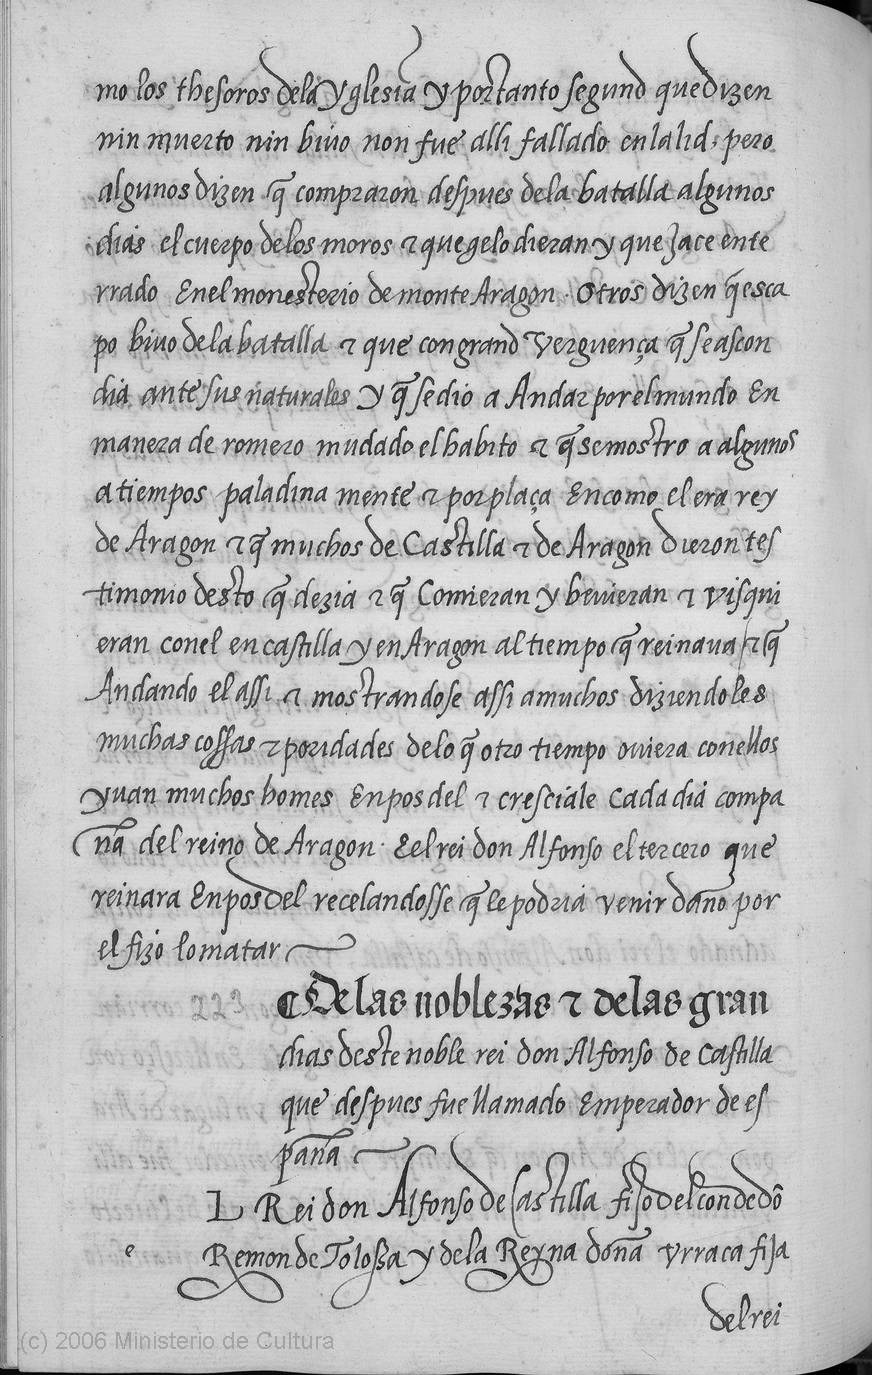 mo los thesoros dela Yglesia y portanto segund quedizen
nin muerto nin bivo non fue alli fallado enlalid, pero
algunos dizen q̃ compraron despues dela batalla algunos
dias el cuerpo delos moros ⁊ quegelo dieran y que Jace ente
rrado Enel monesterio de monte Aragon. Otros dizen q̃ esca
po bivo dela batalla ⁊ que congrand Verguença q̃ seascon
dia ante sus naturales y q̃ sedio a Andar porelmundo En
manera de romero mudado el habito ⁊ q̃ semostro a algunos
atiempos paladina mente ⁊ porplaça Encomo el era rey
de Aragon ⁊ q̃ muchos de Castilla ⁊ de Aragon dieron tes
timonio desto q̃ dezia ⁊ q̃ Comieran y bevieran ⁊ visqui
eran conel encastilla y en Aragon altiempo q̃ reinava / ⁊ q̃
Andando el assi ⁊ mostrandose assi amuchos diziendoles
muchas cossas ⁊ poridades delo q̃ otro tiempo oviera conellos
yuan muchos homes Enpos del ⁊ cresciale Cada dia compa
ñia del reino de Aragon. Eelrei don Alfonso el tercero que
reinara Enposdel recelandosse q̃ lepodria venir daño por
el fizo lo matar
223
Delas noblezas ⁊ delas gran
dias deste noble rei don Alfonso de Castilla
que despues fue llamado Emperador de es
paña
L Rei don Alfonso de Castilla fiJo del conde dõ
e
Remon de Tolossa y dela Reyna doña Vrraca fiJa
delrei
(c) 2006 Ministerio de Cultura